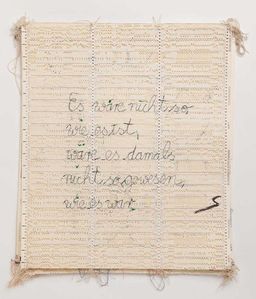 Es wäre nicht so
wie es ist,
wäre es damals
nicht so gewesen,
wie es war